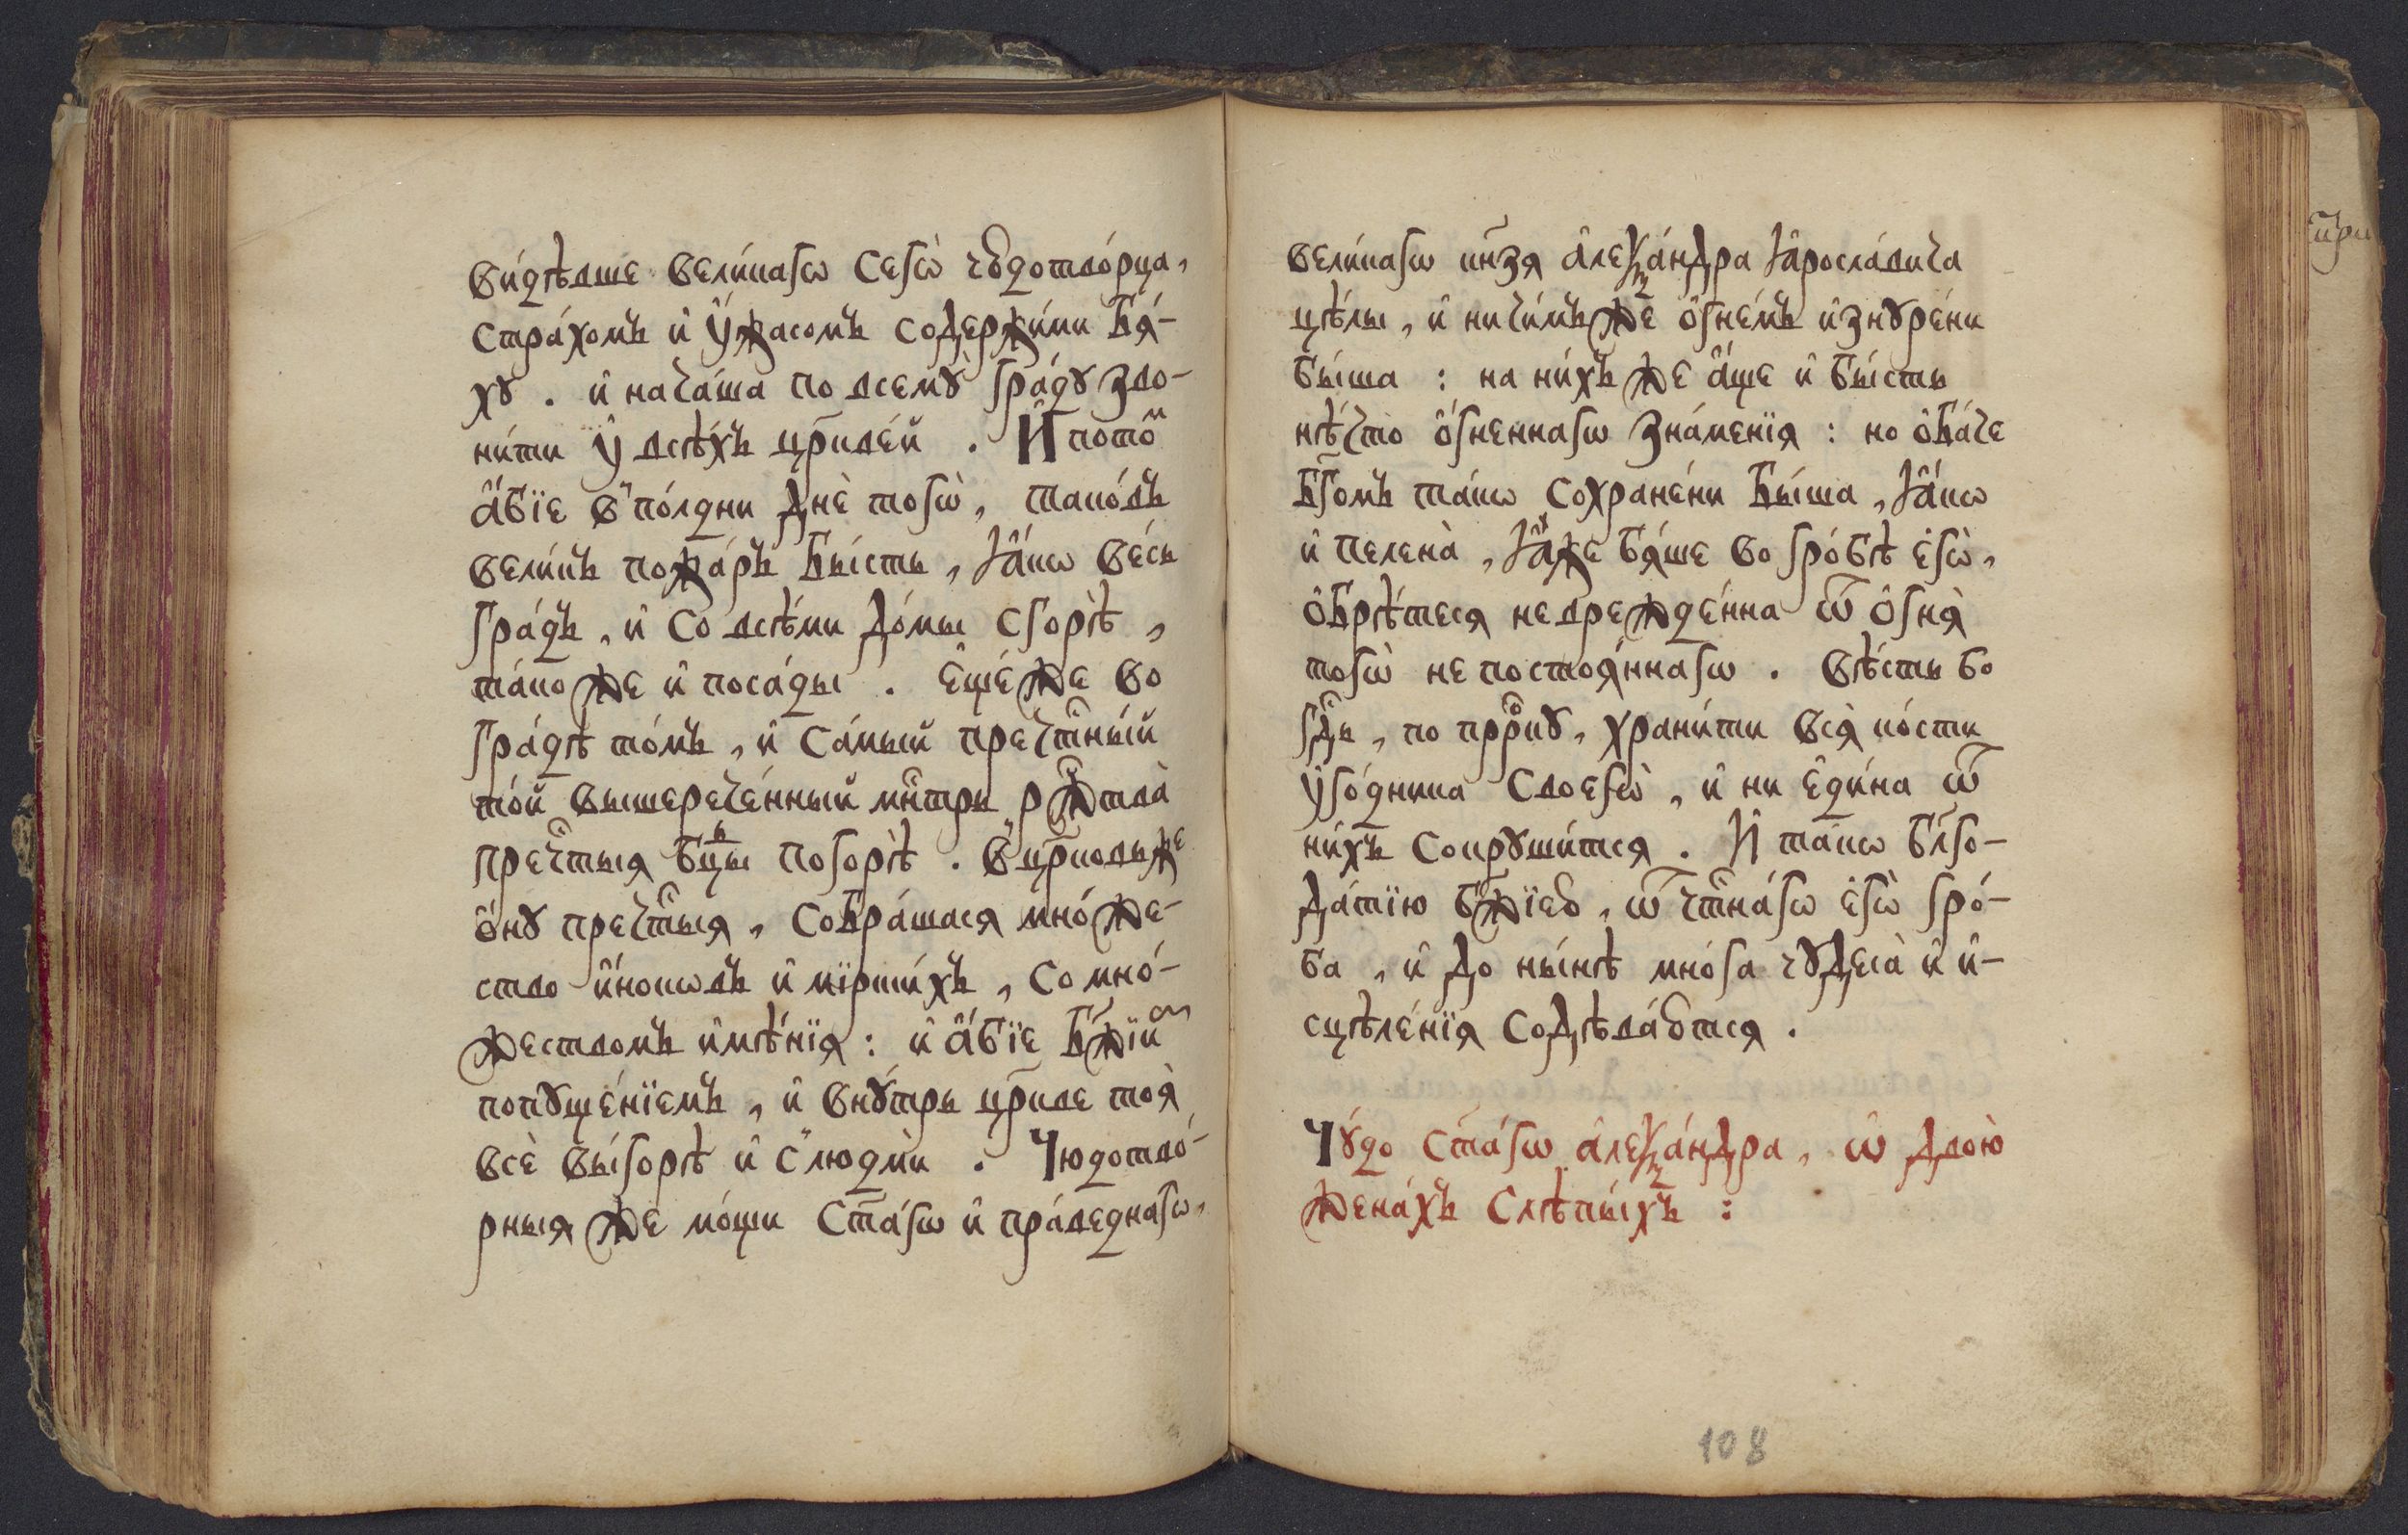 ви́дѣвше вели́каго сегѡ̀ чꙋдотво́рца,
стра́хомъ и҆ ᲂу҆́жасомъ содержи́ми бѧ́-
хꙋ . и҆ нача́ша по всемꙋ̀ гра́дꙋ зво-
ни́ти ᲂу҆ всѣ́хъ цр҃кве́й . И҆ пото́ⷨ
а҆́бїе в̾ по́лдни днѐ тогѡ̀, тако́въ
вели́къ пожа́ръ бы́сть, ꙗ҆́кѡ ве́сь
гра́дъ, и҆ со всѣ́ми до́мы сгорѣ̀,
та́кожде и҆ поса́ды . є҆ще́ же во
гра́дѣ то́мъ, и҆ са́мый пречⷭ҇тны́й
то́й вышерече́нный мⷭ҇нтрь рⷤ҇тва̀
пречⷭ҇тыѧ бцⷣы погорѣ̀ . в̾ цр҃ковь же
ѻ҆́нꙋ пречⷭ҇тыѧ, собра́шасѧ мно́же-
ство и҆́нокѡвъ и҆ мїрски́хъ, со мно́-
жествомъ и҆мѣ́нїѧ : и҆ а҆́бїе бж҃їиⷨ
попꙋще́нїемъ, и҆ внꙋ́трь цр҃кве тоѧ̀
всѐ вы́горѣ и҆ с̾ людмѝ . Чюдотво́-
рныѧ же мо́щи ст҃а́гѡ и҆ пра́веднагѡ,
вели́кагѡ кн҃зѧ а҆леѯа́ндра ꙗ҆росла́вича
цѣ́лы, и҆ ничи́мъже ѻ҆гне́мъ и҆знꙋре́ни
бы́ша : на ни́хъ же а҆́ще и҆ бы́сть
нѣ́что ѻ҆́гненнагѡ зна́менїѧ : но ѻ҆ба́че
бг҃омъ та́кѡ сохране́ни бы́ша, ꙗ҆́кѡ
и҆ пелена̀, ꙗ҆́же бѧ́ше во гро́бѣ є҆гѡ̀,
ѻ҆брѣ́тесѧ невреждє́нна ѿ ѻ҆гнѧ̀
тогѡ̀ непостоѧ́ннагѡ . вѣ́сть бо
гдⷭ҇ь, по прⷪ҇ркꙋ, храни́ти всѧ̀ кѡ́сти
ᲂу҆го́дника своегѡ̀, и҆ ни є҆ди́на ѿ
ни́хъ сокрꙋши́тсѧ . И҆ та́кѡ бл҃го-
да́тїю бж҃їею, ѿ чⷭ҇тна́гѡ є҆гѡ̀ гро́-
ба, и҆ до ны́нѣ мнѡ́га чꙋдеса̀ и҆ и҆-
сцѣле́нїѧ содѣва́ютсѧ .
Чꙋ́до ст҃а́гѡ а҆леѯа́ндра, ѡ҆ двою̀
жена́хъ слѣпы́хъ :
108